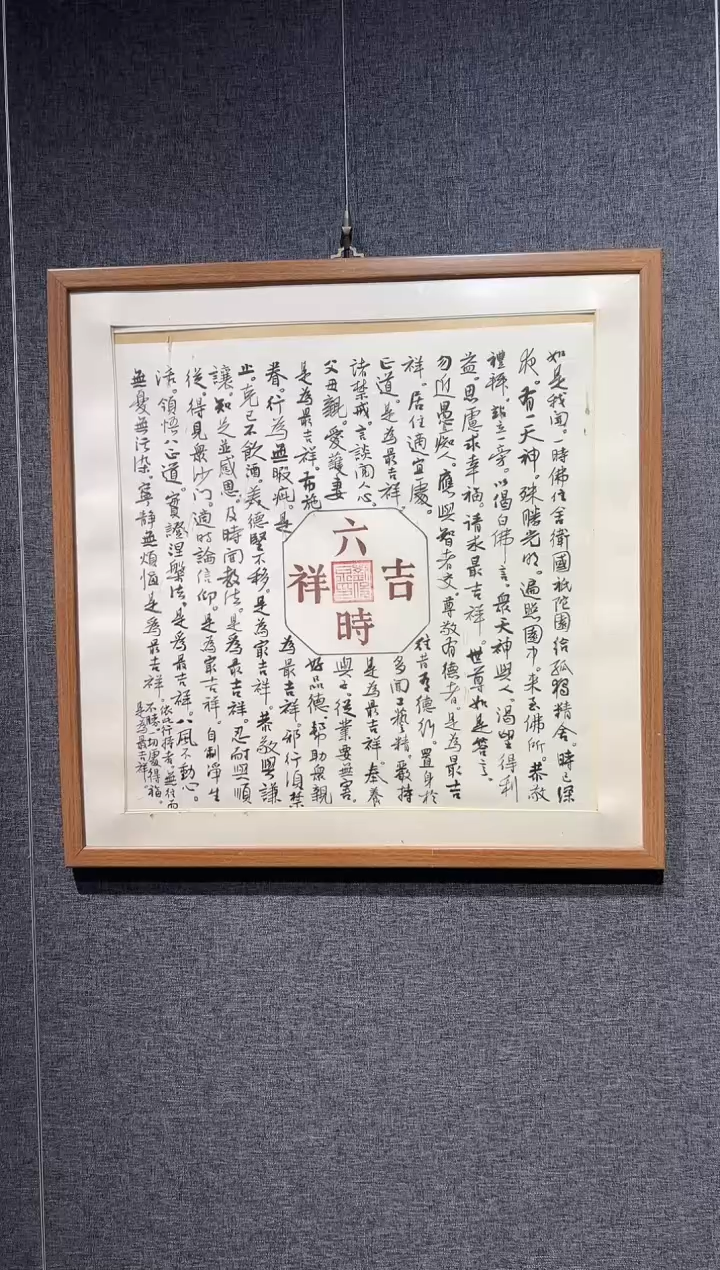 如是我聞。一時佛住舍衛國祇陀園給孤獨精舍。時已深
夜。有一天神。殊勝光明。遍照園中。来至佛所。恭敬
禮拜。站立一旁。以偈白佛言。衆天神與人渴望得利
益思慮求幸福。請求最吉祥。世尊如是答言。
勿近愚癡人。應與智者交尊敬有德者。是為最吉
祥。居住適宜處。往昔有德行。置身於
正道。是為最吉祥。多聞工藝精。嚴持
諸禁戒。言談闻人心。是為最吉祥。奉養
父母親。愛護妻與子。從業要無害。
是為最吉祥。布施好品德。幫助衆親
眷。行為無瑕疵。是為最吉祥。邪行須禁
止。克己不飲酒。美德堅不移。是為最吉祥。恭敬與謙
讓。知足並感恩。及時聞教法。是為最吉祥。忍耐與順
從。得見衆沙门。適时論信仰。是為最吉祥。自制淨生
活。領悟八正道。實證涅槃法。是為最吉祥。八風不動心。
無憂無污染。寧静無煩惱是為最吉祥。
依此行持者。無往而
不勝。切處得福。
是為最吉祥
六
時
吉
祥